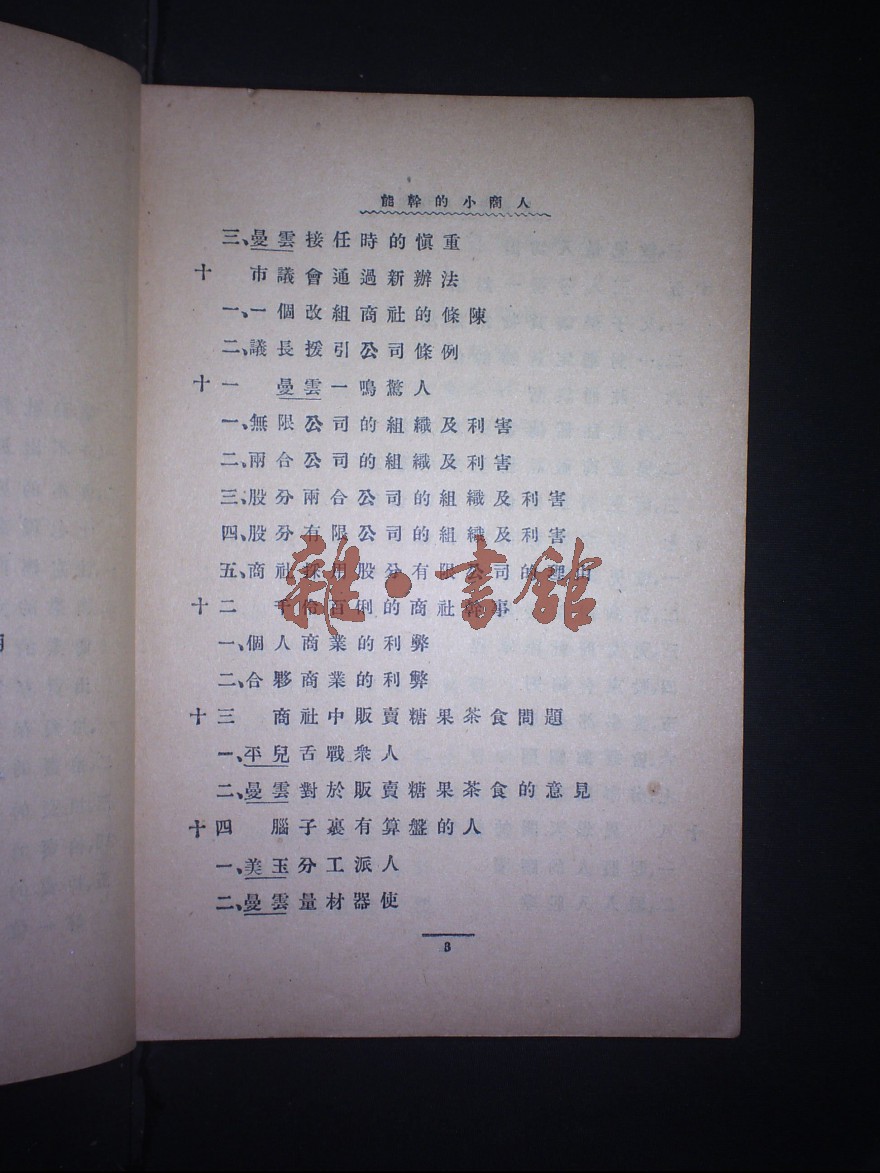 能幹的小商人
三、曼雲接任時的慎重
十　市議會通過新辦法
一、一個改組商社的條陳
二、議長援引公司條例
十一　曼雲一鳴驚人
一、無限公司的組織及利害
二、兩合公司的組織及利害
三、股分兩合公司的組織及利害
四、股分有限公司的組織及利害
五、商社採用股分有限公司的理由
十二　千伶百俐的商社幹事
一、個人商業的利弊
二、合夥商業的利弊
十三　商社中販賣糖果茶食問題
一、平兒舌戰衆人
二、曼雲對於販賣糖果茶食的意見
十四　腦子裏有算盤的人
一、美玉分工派人
二、曼雲量材器使
3
雜·書館